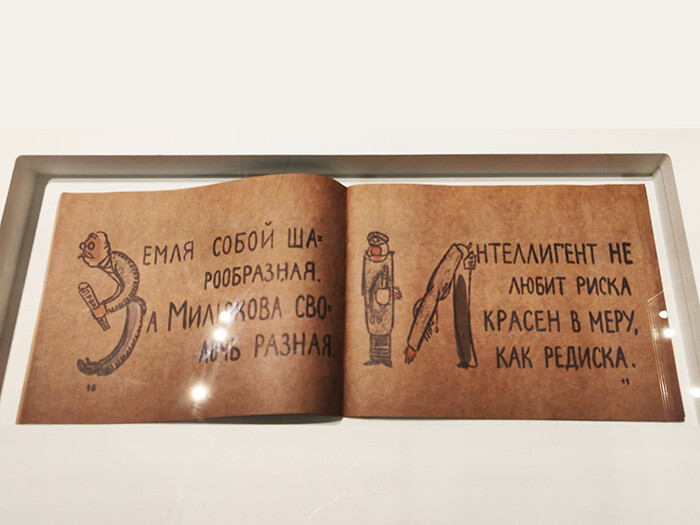 ЗЕМЛЯ СОБОЙ ША=
РООБРАЗНАЯ.
А МИЛЮКОВА СВО=
ЛОЧЬ РАЗНАЯ.
10
I ИНТЕЛЛИГЕНТ НЕ
ЛЮБИТ РИСКА
КРАСЕН В МЕРУ,
КАК РЕДИСКА.
11